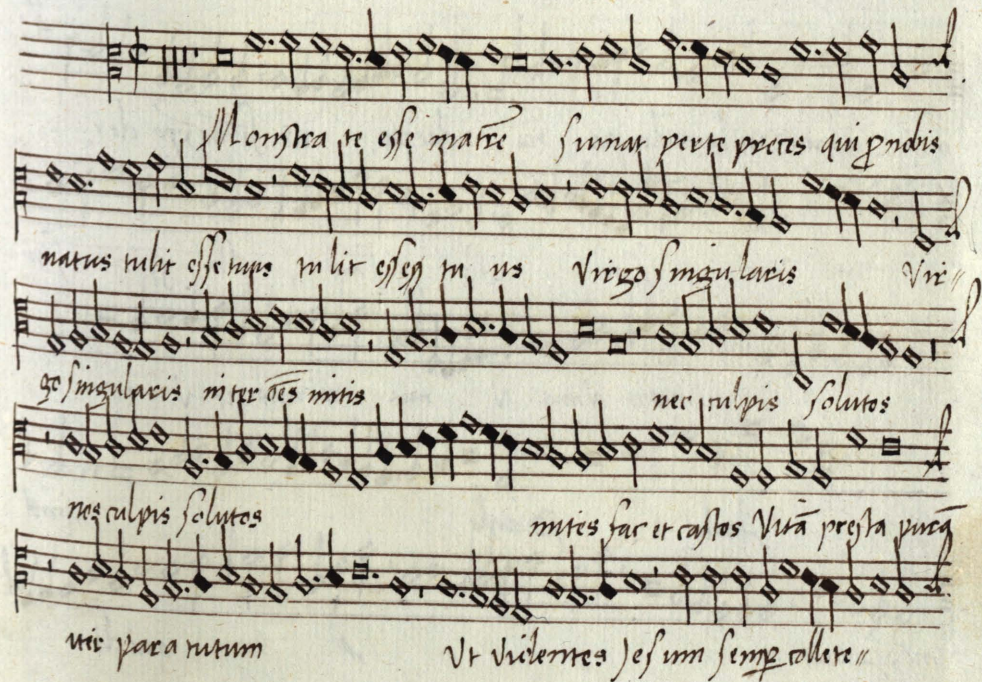 Monstra te esse matrē sumat per te preces qui ꝓ nobis
natus tulit esse tuus tulit esse tuus virgo singularis vir⸗
go singularis inter oēs mitis nec culpis solutos
nos culpis solutos mites fac et castos Vitā presta purā
iter para tutum Ut videntes Jesum semꝑ collete⸗